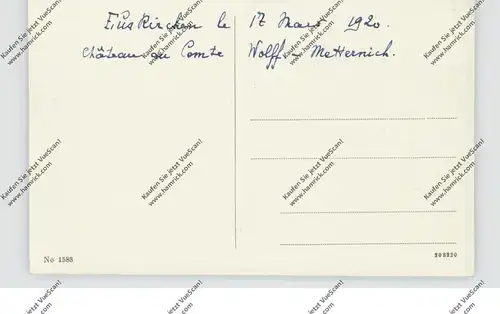 Euskirchen le 17 Mars 1920.
Château du Comte Wolff-Metternich.
No 1583
203220
Kaufen Sie jetzt VueScan!
www.hamrick.com